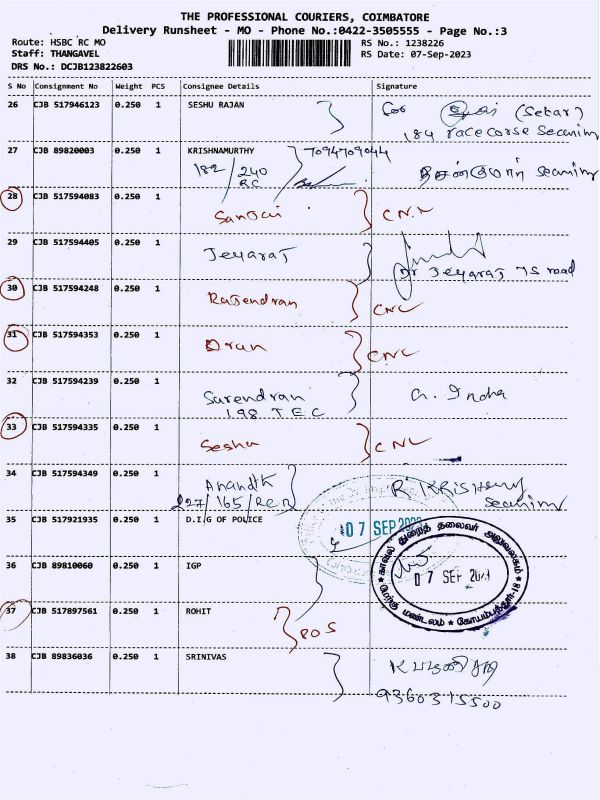 THE PROFESSIONAL COURIERS, COIMBATORE
Delivery Runsheet - MO - Phone No.:0422-3505555 - Page No.:3
Route: HSBC RC MO RS No.: 1238226
Staff: THANGAVEL RS Date: 07-Sep-2023
DRS No.: DCJB123822603
S No Consignment No Weight PCS Consignee Details Signature
26 CJB 517946123 0.250 1 SESHU RAJAN (Sekar)
184 racecorse
27 CJB 89820003 0.250 1 KRISHNAMURTHY 7094709044
182/240
RC
28 CJB 517594083 0.250 1
29 CJB 517594405 0.250 1 Jeyaraj
Dr Jeyaraj TS road
30 CJB 517594248 0.250 1 Rajendran CNL
31 CJB 517594353 0.250 1 CNL
32 CJB 517594239 0.250 1 Sarendran
198 TEC
33 CJB 517594335 0.250 1 Seshu CNL
34 CJB 517594349 0.250 1 Anandh
227/165/
35 CJB 517921935 0.250 1 D.I.G OF POLICE 07 SEP
36 CJB 89810060 0.250 1 IGP
காவல் துறைத் தலைவர் அலுவலகம்
07 SEP
மேற்கு மண்டலம் * கோயம்புத்தூர்-18
37 CJB 517897561 0.250 1 ROHIT POS
38 CJB 89836036 0.250 1 SRINIVAS
9360315500